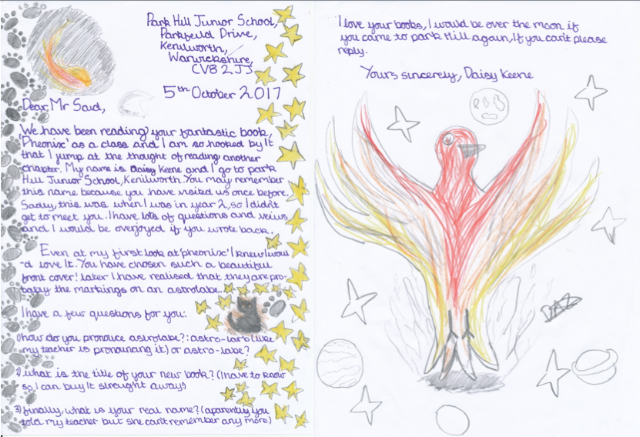 Park Hill Junior School,
Parkfield Drive,
Kenilworth,
Warwickshire,
CV8 2JJ
5th October 2017
Dear, Mr Said,
We have been reading your fantastic book,
'Pheonix' as a class and I am so hooked by it
that I jump at the thought of reading another
chapter. My name is Daisy Keene and I go to park
Hill Junior School, Kenilworth. You may remember
this name because you have visited us once before.
Sadly, this was when I was in year 2, so I didn't
get to meet you. I have lots of questions and
and I would be overjoyed if you wrote back.
Even at my first look at 'pheonix' I knew I woul
-d love it. You have chosen such a beautiful
front cover! Later I have realised that they are pro-
bably the markings on an astrolabe.
I have a few questions for you:
1) How do you pronouce astrolabe?: astro-larb (like
my teacher is pronouncing it) or astro-labe?
2) what is the title of your new book? (I have to know
so I can buy it streight away)
3) finally, what is your real name? (aparently you
told my teacher but she can't remember any more)
I love your books, I would be over the moon if
you came to park Hill again, If you can't please
reply.
Yours sincerely, Daisy Keene